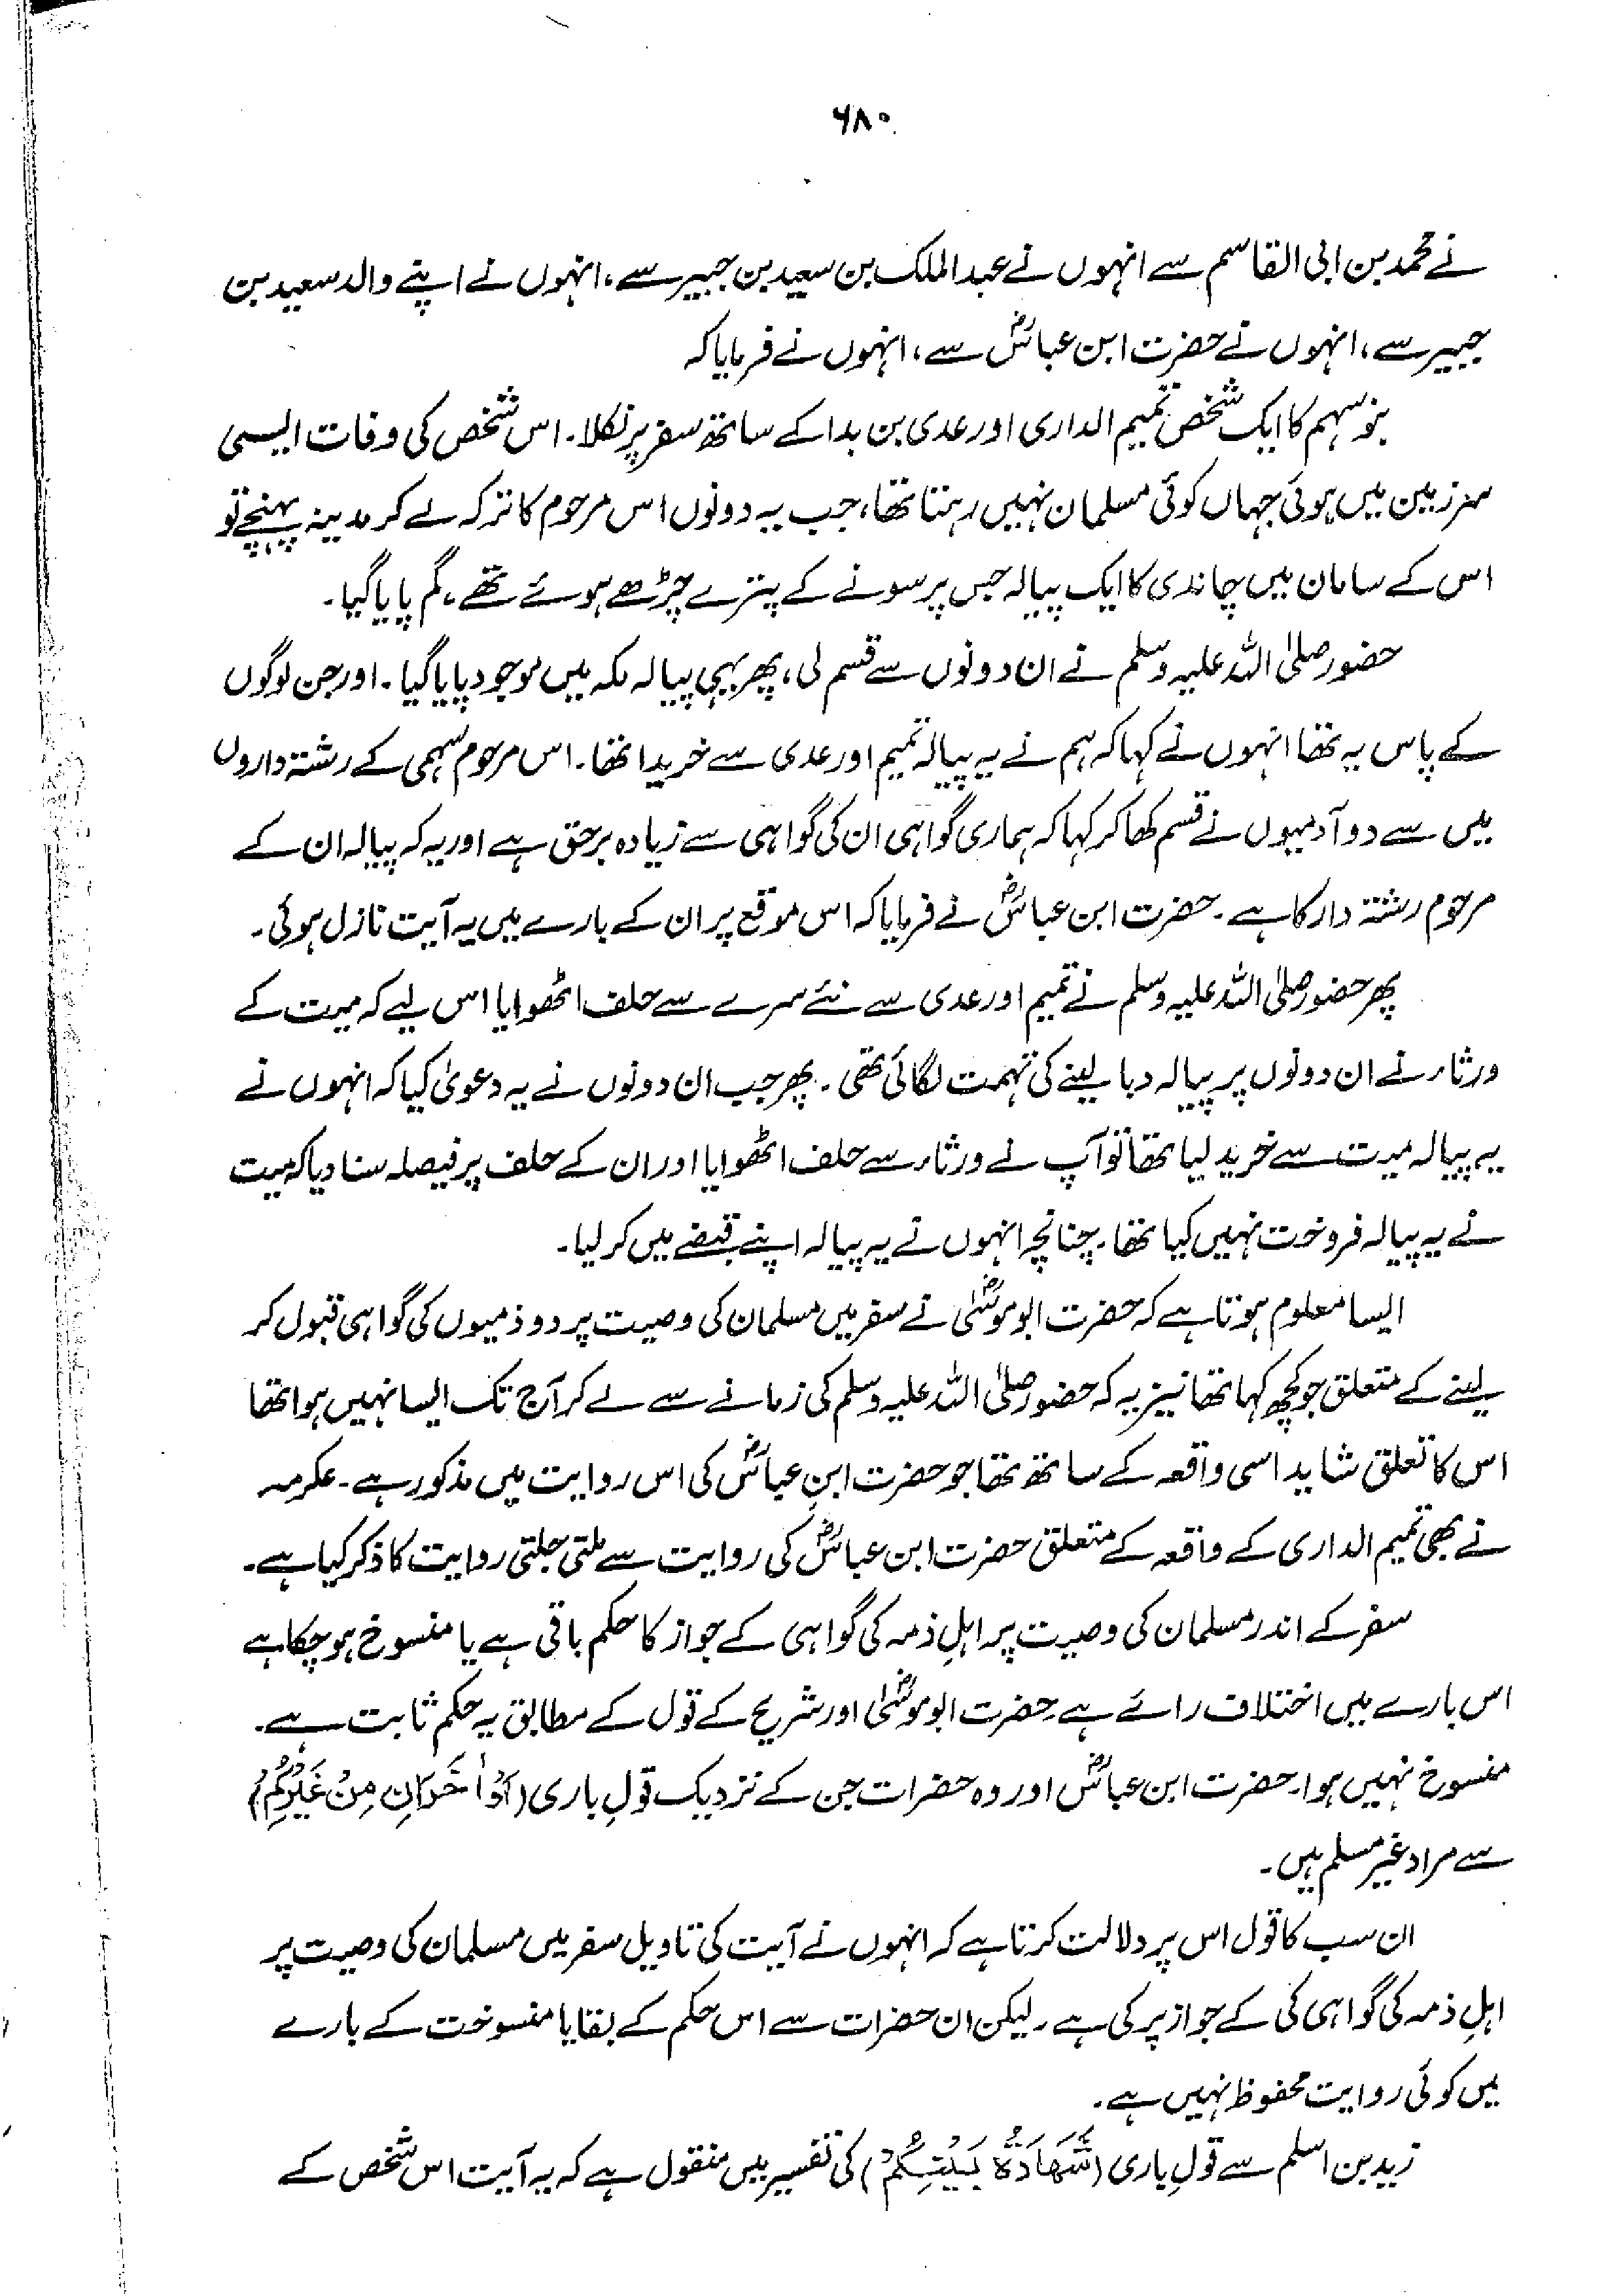 ۶۸۰
نے محمد بن ابی القاسم سے انہوں نے عبدالملک بن سعید بن جبیر سے، انہوں نے اپنے والد سعید بن
جبیر سے، انہوں نے حضرت ابن عباسؓ سے، انہوں نے فرمایا کہ
بنو سہم کا ایک شخص تمیم الداری اور عدی بن بدا کے ساتھ سفر پر نکلا۔ اس شخص کی وفات ایسی
سرزمین میں ہوئی جہاں کوئی مسلمان نہیں رہتا تھا، جب یہ دونوں اس مرحوم کا ترکہ لے کر مدینہ پہنچے تو
اس کے سامان میں چاندی کا ایک پیالہ جس پر سونے کے پترے چڑھے ہوئے تھے، گم پایا گیا۔
حضور صلی اللہ علیہ وسلم نے ان دونوں سے قسم لی، پھر یہی پیالہ مکہ میں موجود پایا گیا۔ اور جن لوگوں
کے پاس یہ تھا انہوں نے کہا کہ ہم نے یہ پیالہ تمیم اور عدی سے خریدا تھا۔ اس مرحوم سہمی کے رشتہ داروں
میں سے دو آدمیوں نے قسم کھا کر کہا کہ ہماری گواہی ان کی گواہی سے زیادہ برحق ہے اور یہ کہ پیالہ ان کے
مرحوم رشتہ دار کا ہے۔ حضرت ابن عباسؓ نے فرمایا کہ اس موقع پر ان کے بارے میں یہ آیت نازل ہوئی۔
پھر حضور صلی اللہ علیہ وسلم نے تمیم اور عدی سے نئے سرے سے حلف اٹھوایا اس لیے کہ میت کے
ورثاء نے ان دونوں پر پیالہ دبا لینے کی تہمت لگائی تھی۔ پھر جب ان دونوں نے یہ دعویٰ کیا کہ انہوں نے
یہ پیالہ میت سے خرید لیا تھا تو آپ نے ورثاء سے حلف اٹھوایا اور ان کے حلف پر فیصلہ سنا دیا کہ میت
نے یہ پیالہ فروخت نہیں کیا تھا۔ چنانچہ انہوں نے یہ پیالہ اپنے قبضے میں کر لیا۔
ایسا معلوم ہوتا ہے کہ حضرت ابو موسیٰؓ نے سفر میں مسلمان کی وصیت پر دو ذمیوں کی گواہی قبول کر
لینے کے متعلق جو کچھ کہا تھا نیز یہ کہ حضور صلی اللہ علیہ وسلم کی زمانے سے لے کر آج تک ایسا نہیں ہوا تھا
اس کا تعلق شاید اسی واقعہ کے ساتھ تھا جو حضرت ابنِ عباسؓ کی اس روایت میں مذکور ہے۔ عکرمہ
نے بھی تمیم الداری کے واقعہ کے متعلق حضرت ابن عباسؓ کی روایت سے ملتی جلتی روایت کا ذکر کیا ہے۔
سفر کے اندر مسلمان کی وصیت پر اہلِ ذمہ کی گواہی کے جواز کا حکم باقی ہے یا منسوخ ہو چکا ہے
اس بارے میں اختلاف رائے ہے۔ حضرت ابو موسیٰؓ اور شریح کے قول کے مطابق یہ حکم ثابت ہے۔
منسوخ نہیں ہوا۔ حضرت ابن عباسؓ اور وہ حضرات جن کے نزدیک قولِ باری (اَوْ اٰخَرَانِ مِنْ غَیْرِکُمْ)
سے مراد غیر مسلم ہیں۔
ان سب کا قول اس پر دلالت کرتا ہے کہ انہوں نے آیت کی تاویل سفر میں مسلمان کی وصیت پر
اہلِ ذمہ کی گواہی کی کے جواز پر کی ہے۔ لیکن ان حضرات سے اس حکم کے بقا یا منسوخت کے بارے
میں کوئی روایت محفوظ نہیں ہے۔
زید بن اسلم سے قولِ باری (شَهَادَةُ بَيْنِكُمْ) کی تفسیر میں منقول ہے کہ یہ آیت اس شخص کے